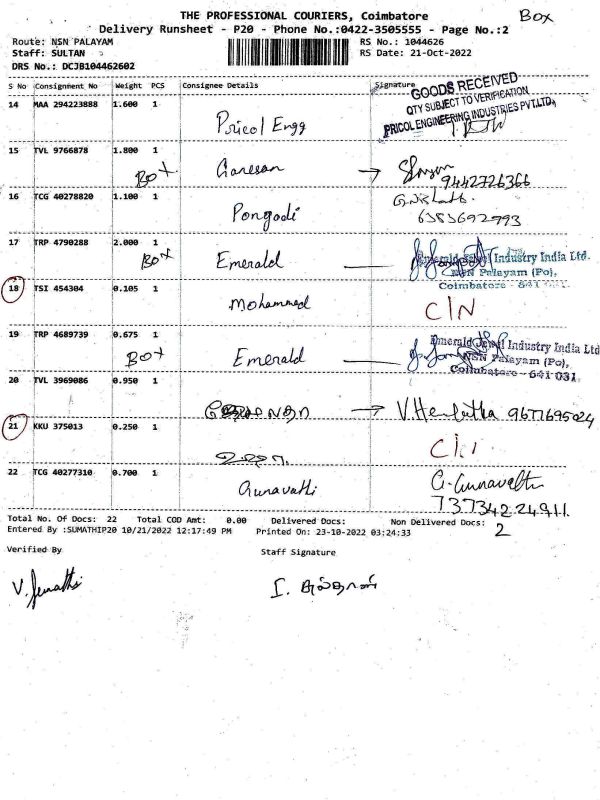 THE PROFESSIONAL COURIERS, Coimbatore
Box
Delivery Runsheet - P20 - Phone No.:0422-3505555 - Page No.:2
Route: NSN PALAYAM
RS No.: 1044626
Staff: SULTAN
RS Date: 21-Oct-2022
DRS No.: DCJB104462602
S No Consignment No Weight PCS Consignee Details Signature
14 MAA 294223888 1.600 1 Pricol Engg
GOODS RECEIVED
QTY SUBJECT TO VERIFICATION
PRICOL ENGINEERING INDUSTRIES PVT.LTD.,
15 TVL 9766878 1.800 1 Box Ganesan
9442726366
16 TCG 40278820 1.100 1 Pongodi
6383692793
17 TRP 4790288 2.000 1 Box Emerald
Emerald Jewel Industry India Ltd.
NSN Palayam (Po),
Coimbatore - 641 031.
18 TSI 454304 0.105 1 Mohammed C/N
19 TRP 4689739 0.675 1 Box Emerald
Emerald Jewel Industry India Ltd
NSN Palayam (Po),
Coimbatore - 641 031.
20 TVL 3969086 0.950 1
9677695024
21 KKU 375013 0.250 1
22 TCG 40277310 0.700 1 Gunavathi G. Gunavathi
73734224911
Total No. Of Docs: 22 Total COD Amt: 0.00 Delivered Docs: Non Delivered Docs: 2
Entered By :SUMATHIP20 10/21/2022 12:17:49 PM Printed On: 23-10-2022 03:24:33
Verified By
Staff Signature